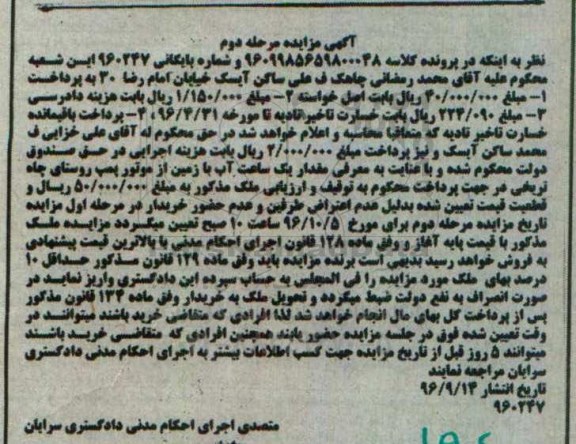 آگهی مزایده مرحله دوم
نظر به اینکه در پرونده کلاسه ۹۶۰۹۹۸۵۶۵۹۸۰۰۰۴۸ و شماره بایگانی ۹۶۰۲۴۷ ایـن شـعبه
محکوم علیه آقای محمد رمضانی چاهک ف علی ساکن آیسک خیابان امام رضا ۳۰ به پرداخت
۱- مبلغ ۴۰/۰۰۰/۰۰۰ ریال بابت اصل خواسته ۲- مبلغ ۱/۱۵۰/۰۰۰ ریال بابت هزینه دادرسـی
۳- مبلغ ۲۲۴/۰۹۰ ریال بابت خسارت تاخیر تادیه تا مورخه ۹۶/۴/۳۱ ، ۴- پرداخت باقیمانده
خسارت تاخیر تادیه که متعاقبا محاسبه و اعلام خواهد شد در حق محکوم له آقای علی خزایی ف
محمد ساکن آیسک و نیز پرداخت مبلغ ۲/۰۰۰/۰۰۰ ریال بابت هزینه اجرایی در حـق صـندوق
دولت محکوم شده و با عنایت به معرفی مقدار یک ساعت آب با زمین از موتور پمپ روستای چاه
تریخی در جهت پرداخت محکوم به توقیف و ارزیابی ملک مذکور به مبلغ ۵۰/۰۰۰/۰۰۰ ریـال و
قطعیت قیمت تعیین شده بدلیل عدم اعتراض طرفین و عدم حضور خریدار در مرحله اول مزایده
تاریخ مزایده مرحله دوم برای مورخ ۹۶/۱۰/۵ ساعت ۱۰ صبح تعیین میگـردد مزایـده ملـک
مذکور با قیمت پایه آغاز و وفق ماده ۱۲۸ قانون اجرای احکام مدنی با بالاترین قیمت پیشنهادی
به فروش خواهد رسید بدیهی است برنده مزایده باید وفق ماده ۱۲۹ قانون مـذکور حـداقل ۱۰
درصد بهای ملک مورد مزایده را فی المجلس به حساب سپرده این دادگستری واریز نمایـد در
صورت انصراف به نفع دولت ضبط میگردد و تحویل ملک به خریدار وفق ماده ۱۳۴ قانون مذکور
پس از پرداخت کل بهای مال انجام خواهد شد لذا افرادی که متقاضی خرید باشند میتواننـد در
وقت تعیین شده فوق در جلسه مزایده حضور یابند همچنین افرادی که متقاضـی خریـد باشـند
میتوانند ۵ روز قبل از تاریخ مزایده جهت کسب اطلاعات بیشتر به اجرای احکام مدنی دادگستری
سرایان مراجعه نمایند
تاریخ انتشار ۹۶/۹/۱۴
۹۶۰۲۴۷
متصدی اجرای احکام مدنی دادگستری سرایان